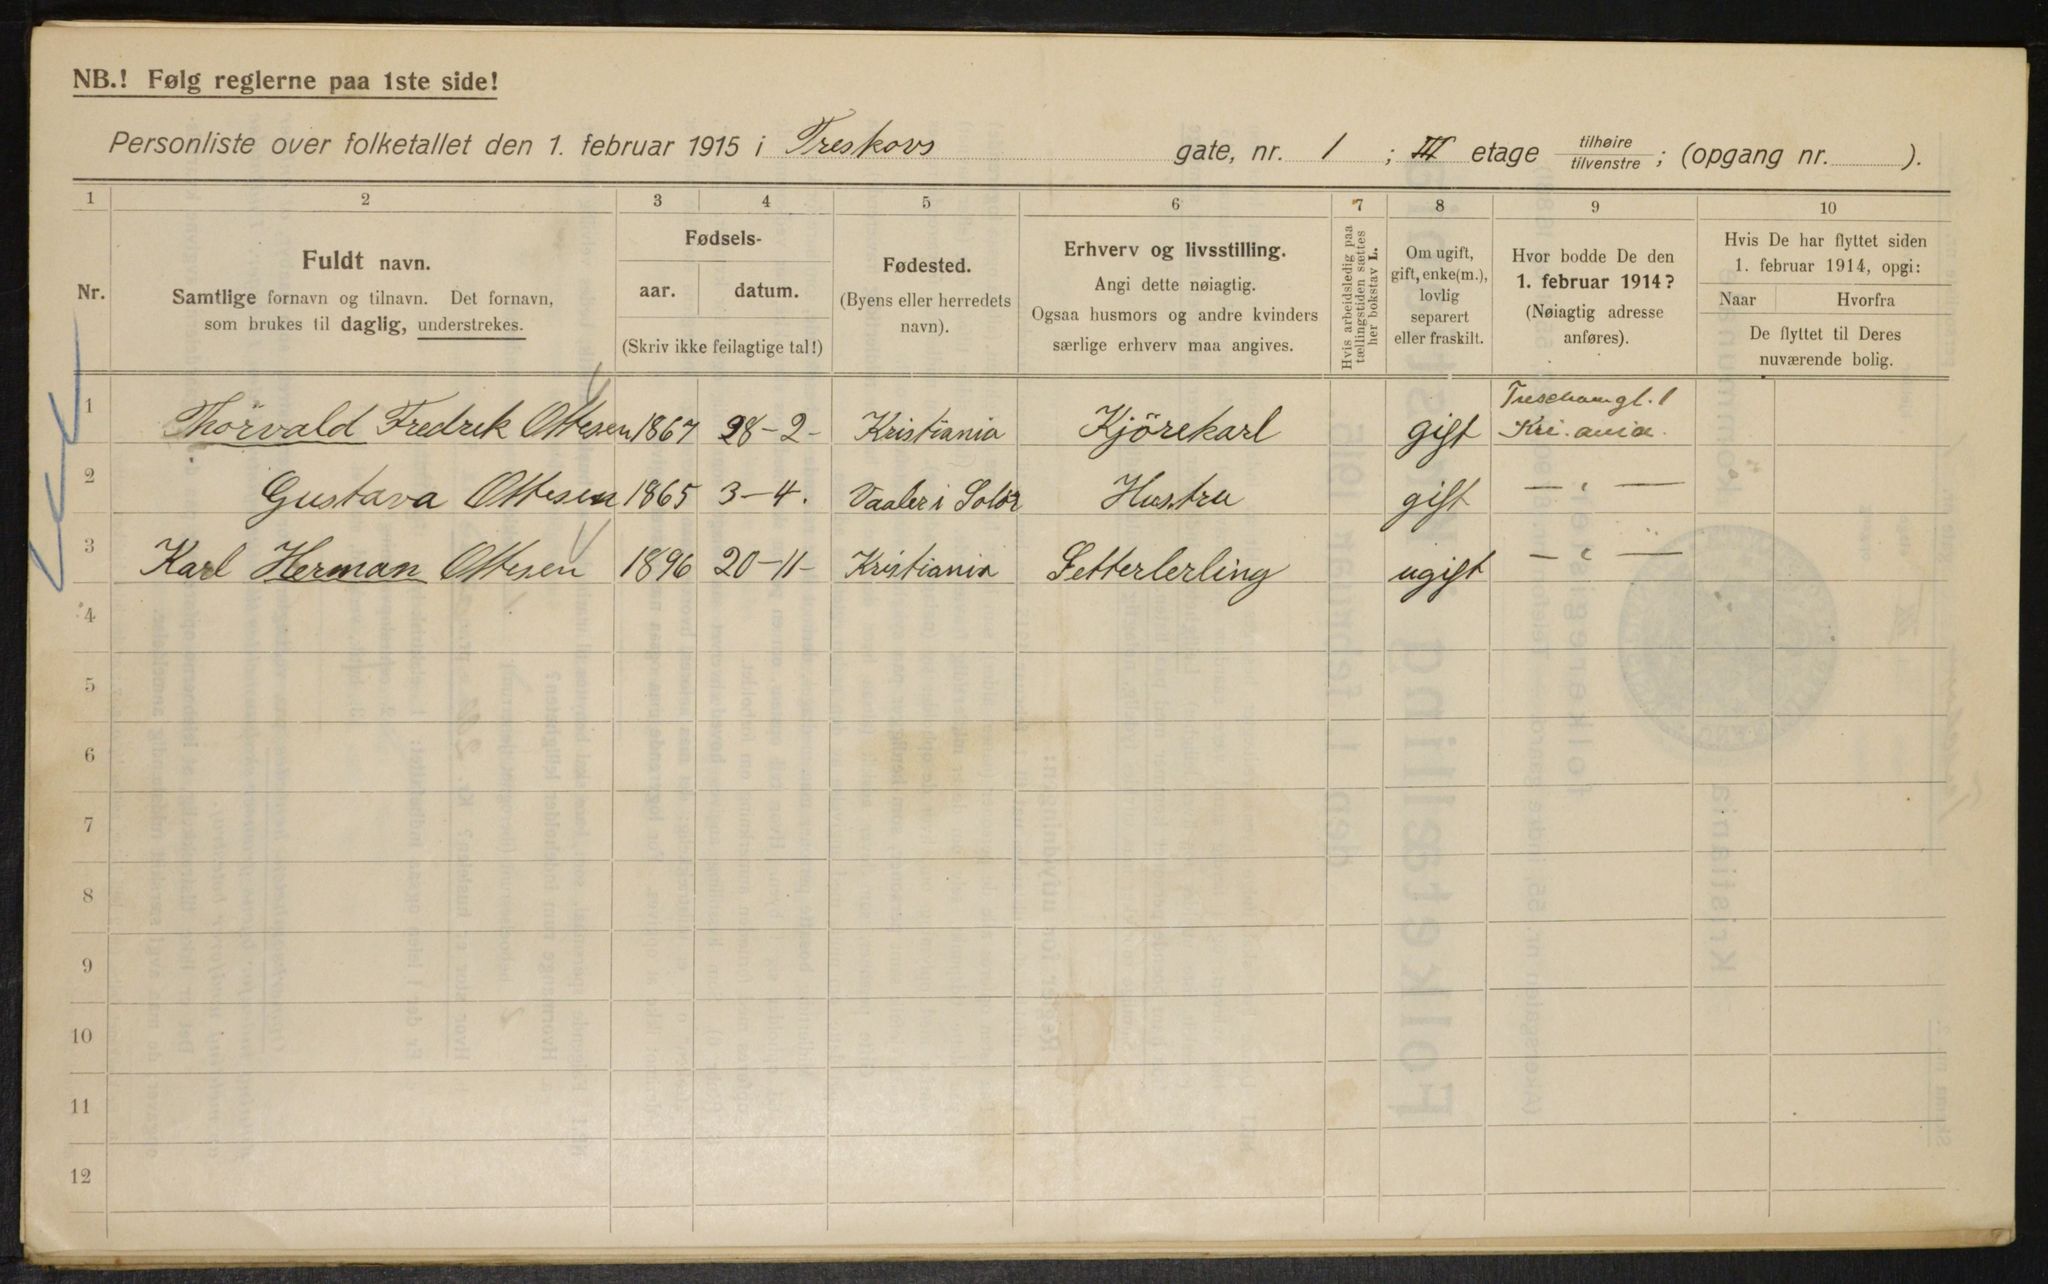 NB.! Følg reglerne paa 1ste side!
Personliste over folketallet den 1. februar 1915 i Treskovs gate, nr. 1 ; III etage tilhøire/tilvenstre ; (opgang nr. ).
1 2 3 4 5 6 7 8 9 10
Nr.
Fuldt navn.
Samtlige fornavn og tilnavn. Det fornavn,
som brukes til daglig, understrekes.
Fødsels-
aar. datum.
(Skriv ikke feilagtige tal!)
Fødested.
(Byens eller herredets
navn).
Erhverv og livsstilling.
Angi dette nøiagtig.
Ogsaa husmors og andre kvinders
særlige erhverv maa angives.
Hvis arbeidsledig paa
tællingstiden sættes
her bokstav L.
Om ugift,
gift, enke(m.),
lovlig
separert
eller fraskilt.
Hvor bodde De den
1. februar 1914?
(Nøiagtig adresse
anføres).
Hvis De har flyttet siden
1. februar 1914, opgi:
Naar Hvorfra
De flyttet til Deres
nuværende bolig.
1 Thorvald Fredrik Ottesen 1867 28-2- Kristiania Kjörekarl gift
2 Gustava Ottesen 1865 3-4. Vaaler i Solör Hustru gift — " —
3 Karl Herman Ottesen 1896 20-11- Kristiania Setterlerling ugift — " —
4
5
6
7
8
9
10
11
12